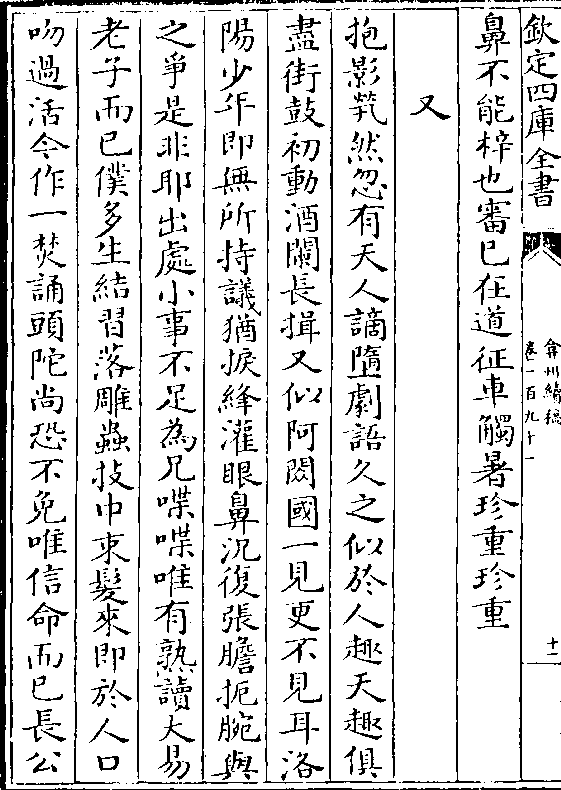 欽定四庫全書
弇州續稿
卷一百九十一
十一
鼻不能梓也審已在道征車觸暑珍重珍重
又
抱影煢然忽有天人謫墮劇語久之似於人趣天趣俱
盡街鼓初動酒闌長揖又似阿閦國一見更不見耳洛
陽少年即無所持議猶捩絳灌眼鼻況復張膽扼腕與
之爭是非耶出處小事不足為兄喋喋唯有熟讀大易
老子而已僕多生結習落雕蟲技中束髮來即於人口
吻過活今作一焚誦頭陀尚恐不免唯信命而已長公